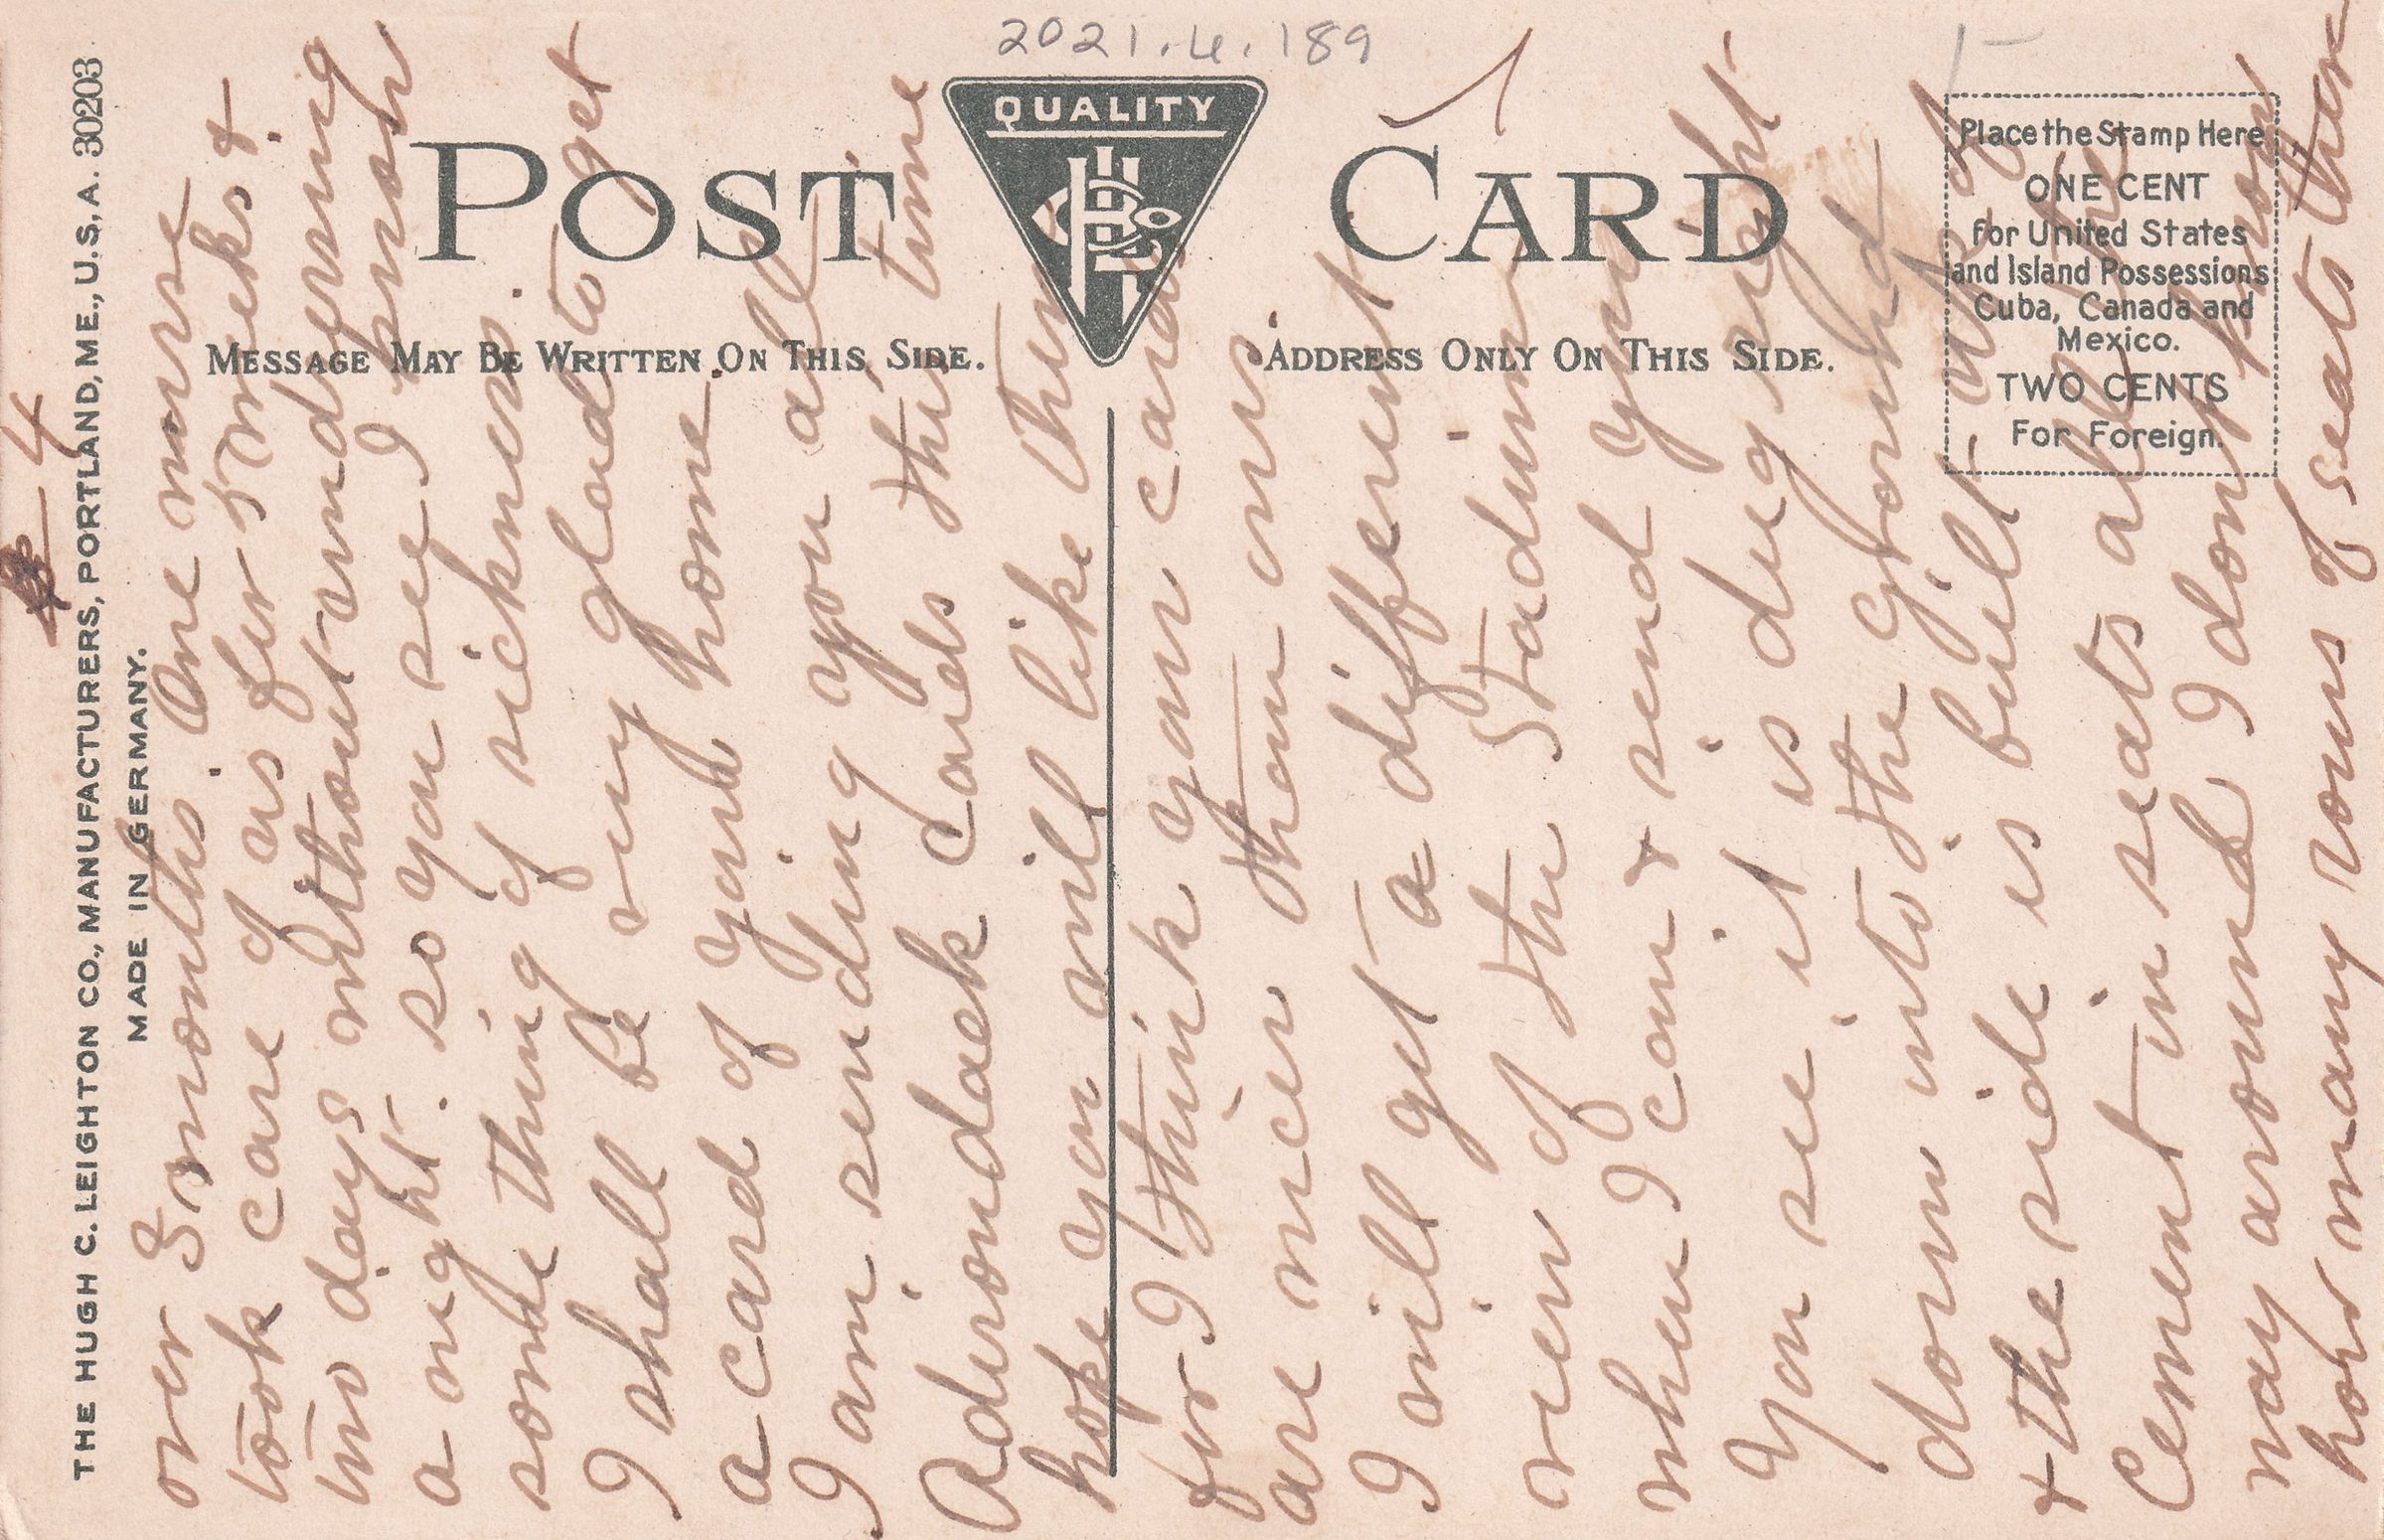 2021.4.189
POST CARD
QUALITY
HLCo
MESSAGE MAY BE WRITTEN ON THIS SIDE.
ADDRESS ONLY ON THIS SIDE.
Place the Stamp Here
ONE CENT
for United States
and Island Possessions
Cuba, Canada and
Mexico.
TWO CENTS
For Foreign.
THE HUGH C. LEIGHTON CO., MANUFACTURERS, PORTLAND, ME., U.S.A. 30203
MADE IN GERMANY.
4
over 3 months. One nurse
took care of us for 5 weeks &
two days without undressing
a night. so you see I know
some thing of sickness.
I shall be very glad to get
a card of your home.
I am sending you all
Adirondack Cards this time
hope you will like them
for I think your cards
are nicer than ours
I will get a different
view of the Stadium
when I can & send you
You see it is dug right
down into the ground
& the side is built up of
Cement in seats all the
way around I dont know
how many rows of seats there